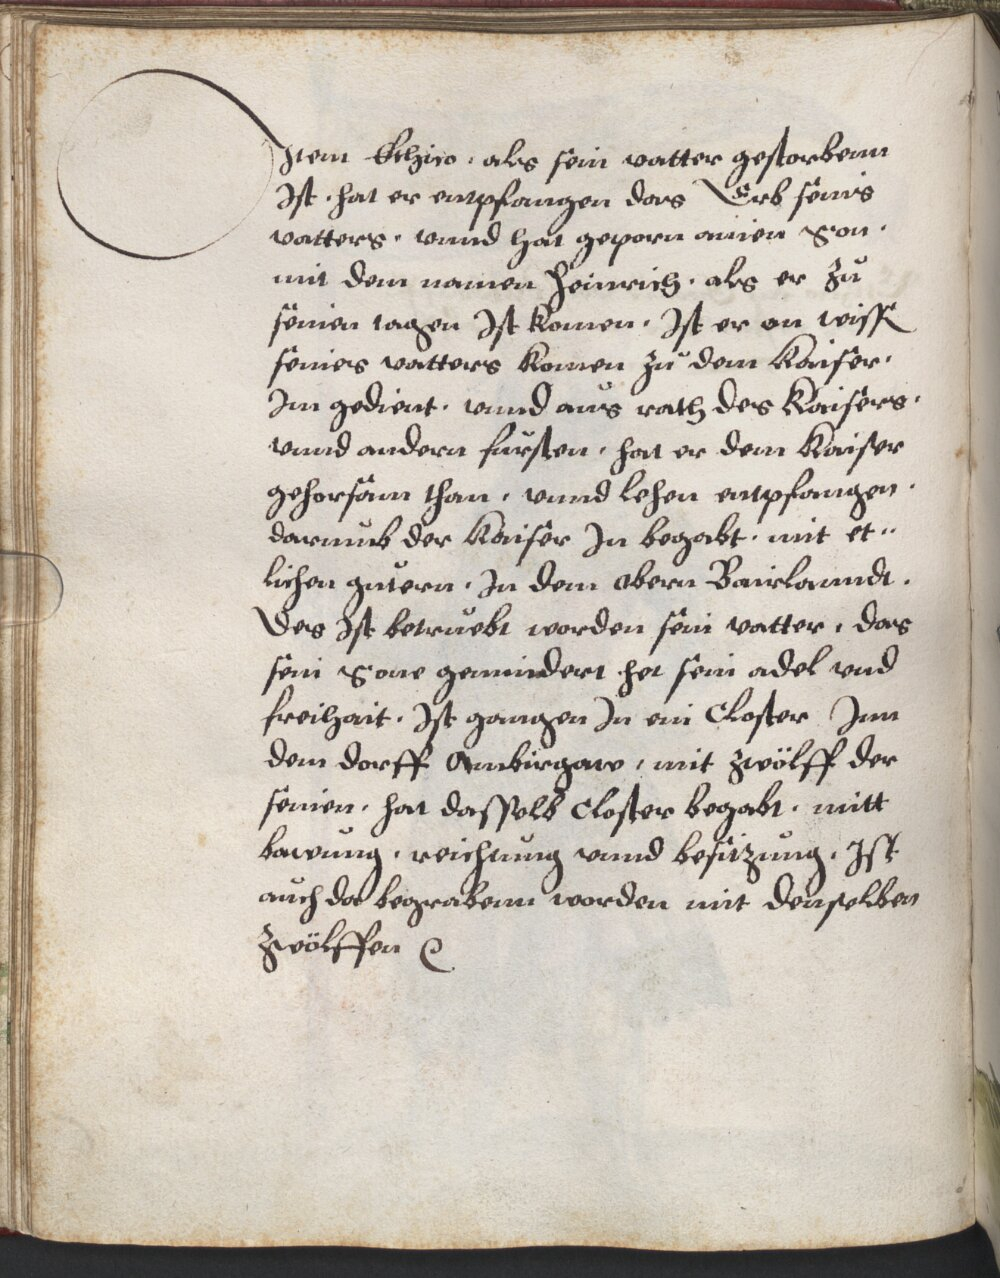 Item Ethico · als sein vatter gestorbenn
Ist · hat er entpfangen das Erb seins
vatters · vnnd hat geporn ainen Son ·
mit dem namen Heinrich · als er zu
seinen tagen Ist komen · Ist er on wissn
seines vatters komen zu dem Kaiser ·
Im gedient · vnnd aus rath des Kaisers ·
vnnd andern fursten · hat er dem Kaiser
gehorsam than · vnnd lehen entpfangen ·
darumb der Kaiser In begabt · mit et=
lichen gutern · In dem obern Bairlanndt ·
Des Ist betruebt worden sein vatter · das
sein Sone gemindert het sein adel vnd
freihait · Ist gangen In ein Closter Inn
dem dorff Ambirgaw · mit zwölff der
seinen · hat dasselb Closter begabt · mitt
bawung · reichtung vnnd besitzung · Ist
auch da begrabenn worden mit denselben
zwölffen